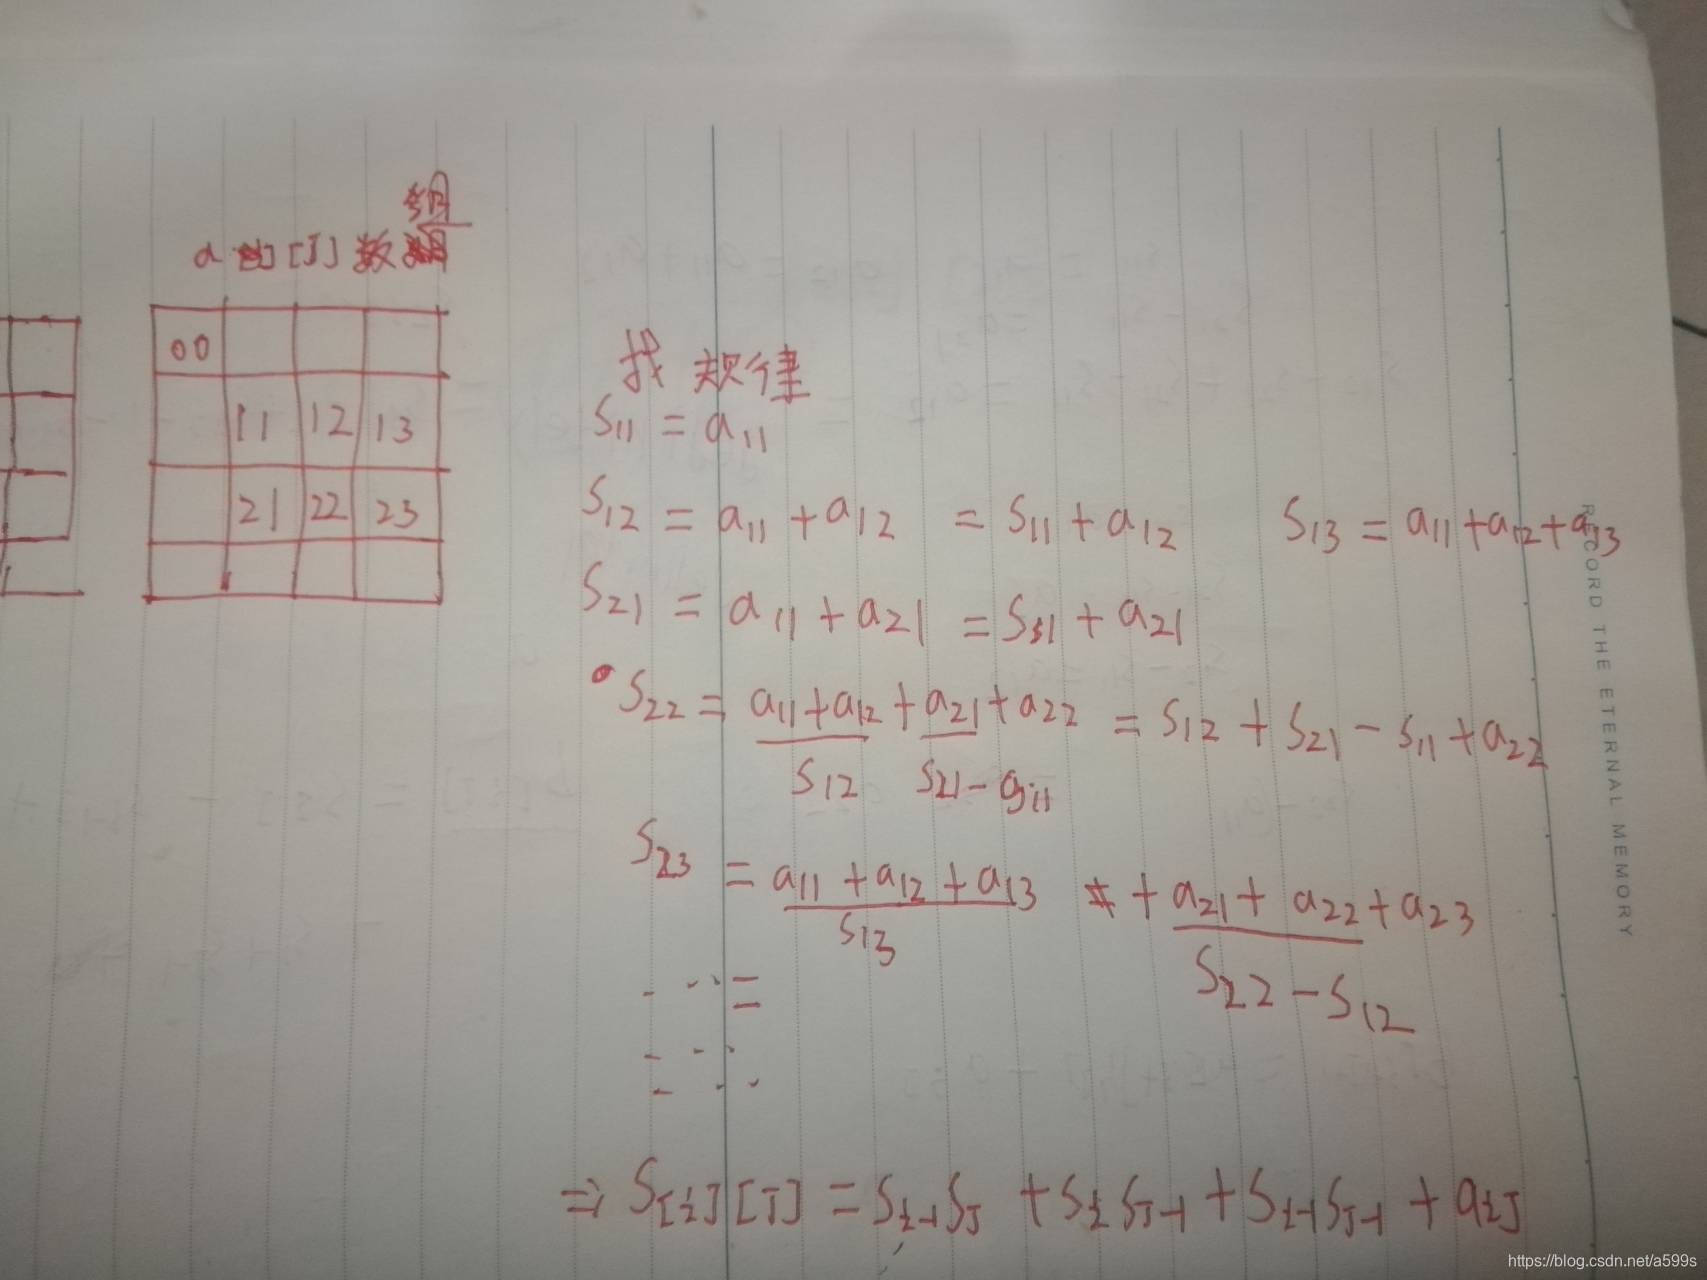 组
a [i] [J] 数
00
11 12 13
21 22 23
找规律
S11 = a11
S12 = a11 + a12 = S11 + a12 S13 = a11 + a12 + a13
S21 = a11 + a21 = S11 + a21
S22 = a11 + a12 + a21 + a22 = S12 + S21 - S11 + a22
S12 S21 - a11
S23 = a11 + a12 + a13 + a21 + a22 + a23
S13 S22 - S12
=
⇒ S[i][J] = Si-1SJ + SiSJ-1 + Si-1SJ-1 + aiJ
RECORD THE ETERNAL MEMORY
https://blog.csdn.net/a599s